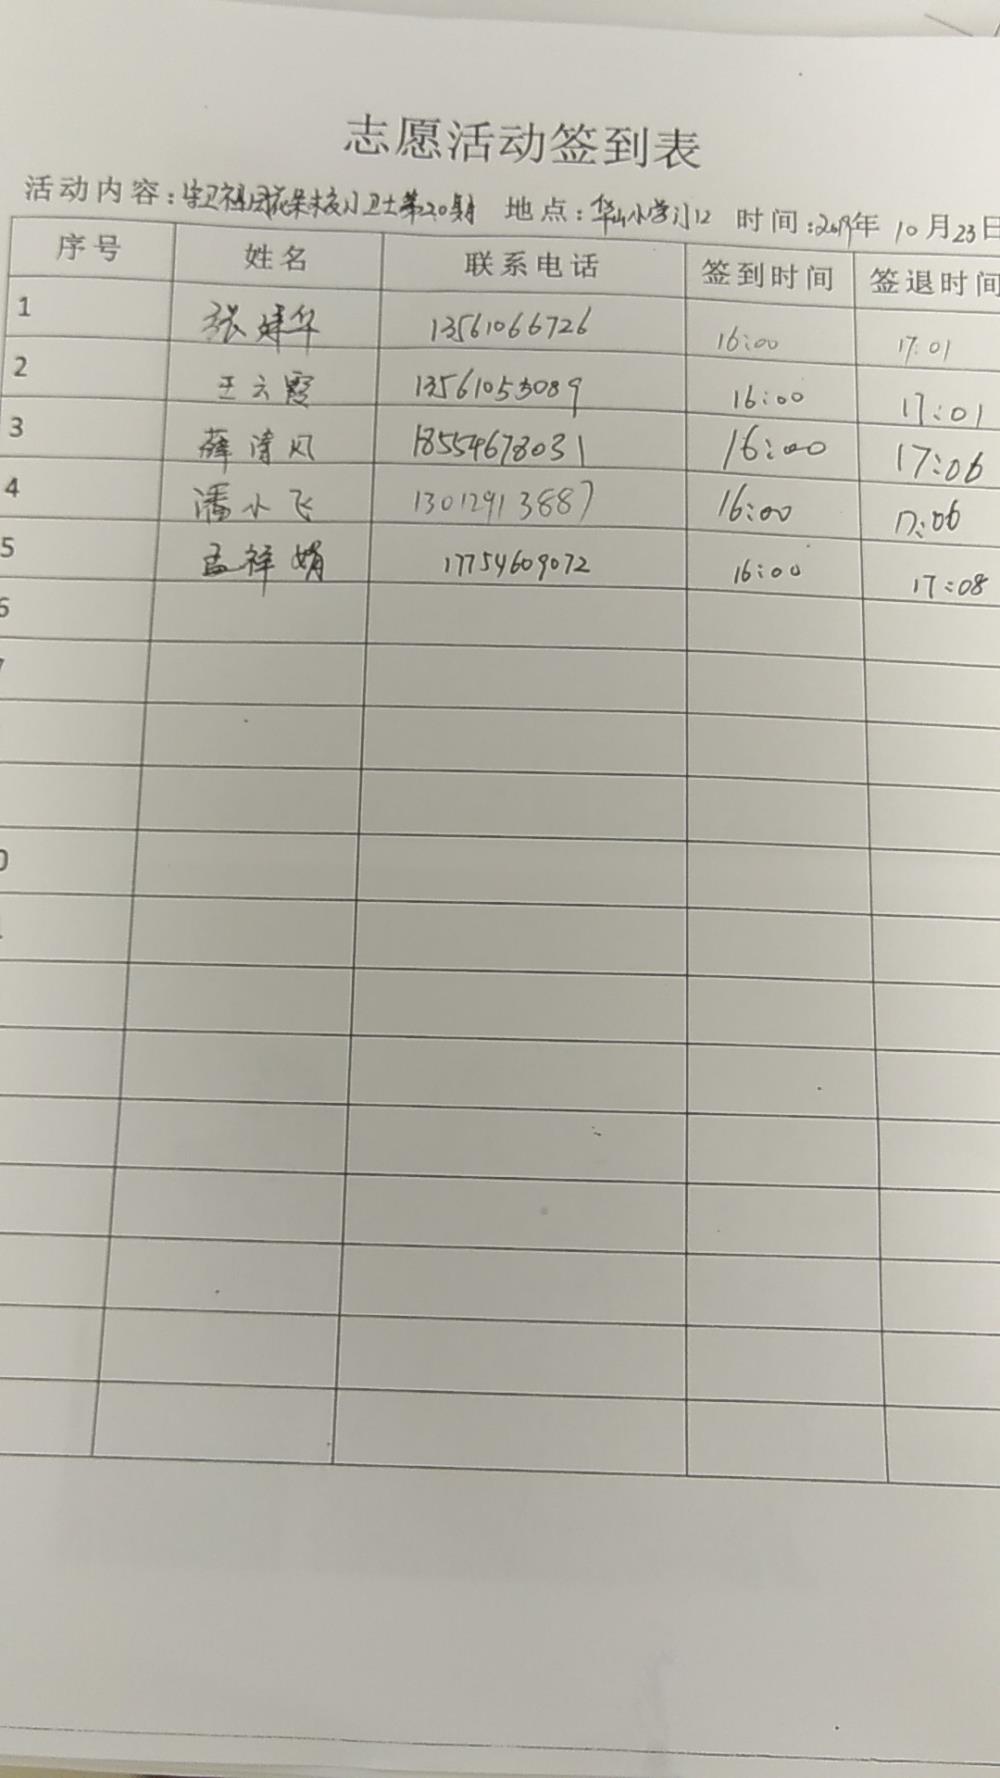 志愿活动签到表
活动内容：守卫祖国花朵校小卫士第20期 地点：华山小学门口 时间：2019年 10月23日
序号 姓名 联系电话 签到时间 签退时间
1 张建华 13561066726 16:00 17:01
2 王云霞 13561053089 16:00 17:01
3 薛清风 18554678031 16:00 17:06
4 潘小飞 13012913887 16:00 17:06
5 孟祥娟 17754609072 16:00 17:08
6
7
0